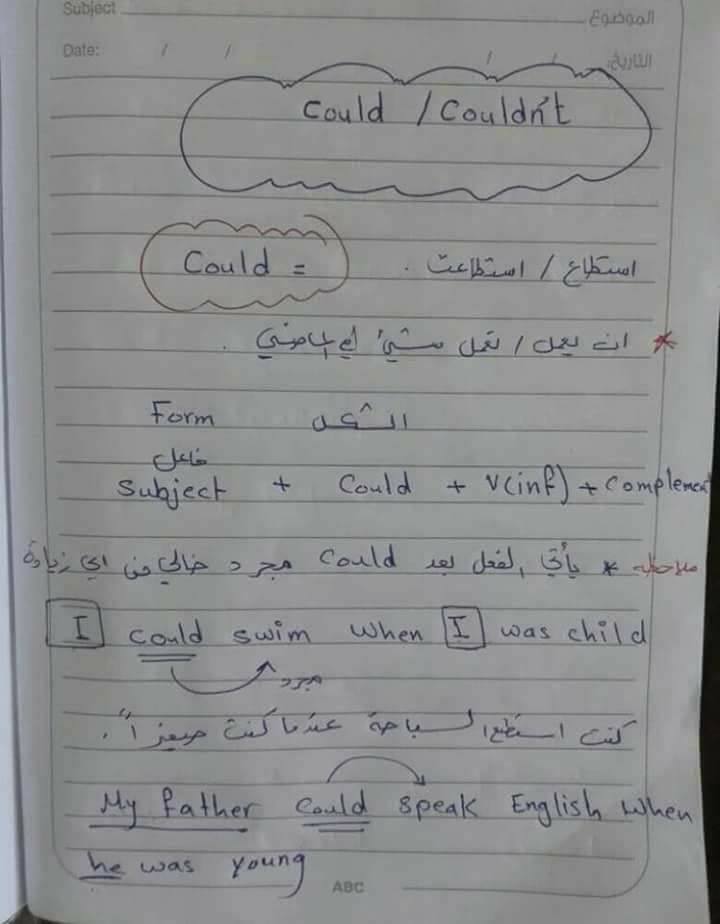 Subject الموضوع
Date: / / / / التاريخ:
Could / Couldn't
Could = استطاع / استطاعت .
* ان يعمل / تعمل شيئ في الماضي .
Form الشكل
فاعل
Subject + Could + V(inf) + Complement
ملاحظه * يأتي الفعل بعد Could مجرد خالي من اي زيادة
I could swim when I was child
مجرد
كنت استطيع السباحة عندما كنت صغيراً .
My father could speak English when
he was young
ABC